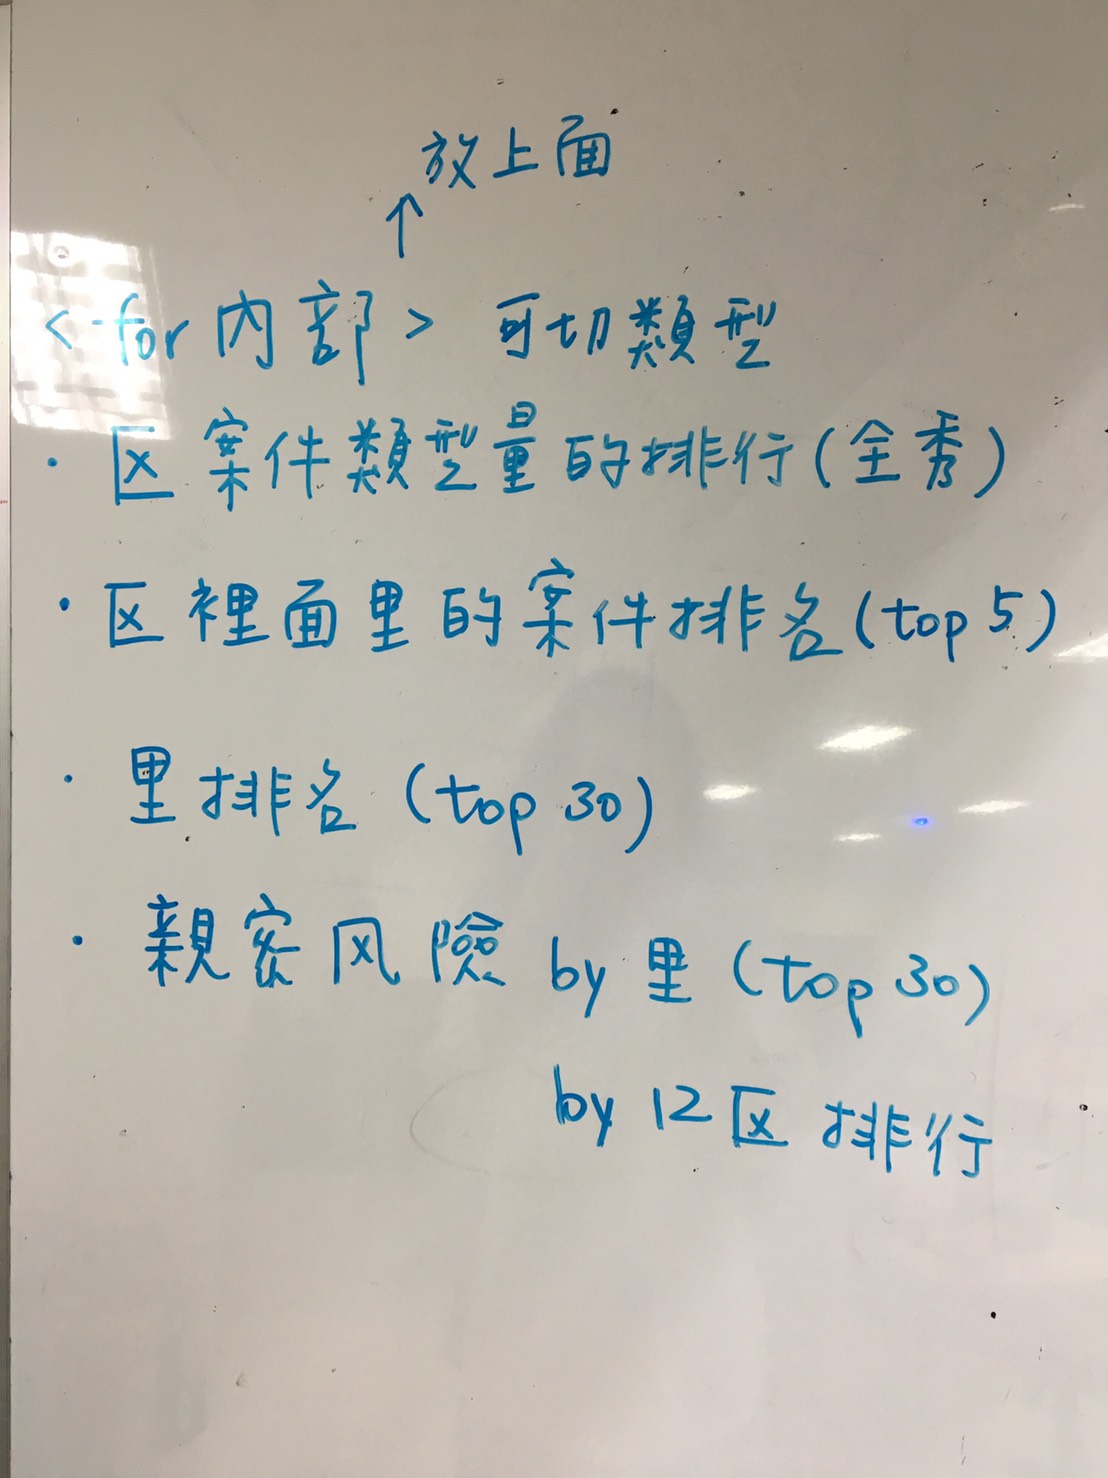 放上面
↑
<for內部> 可切類型
· 区案件類型量的排行(全秀)
· 区裡面里的案件排名(top 5)
· 里排名(top 30)
· 親密风險 by 里(top 30)
by 12区排行